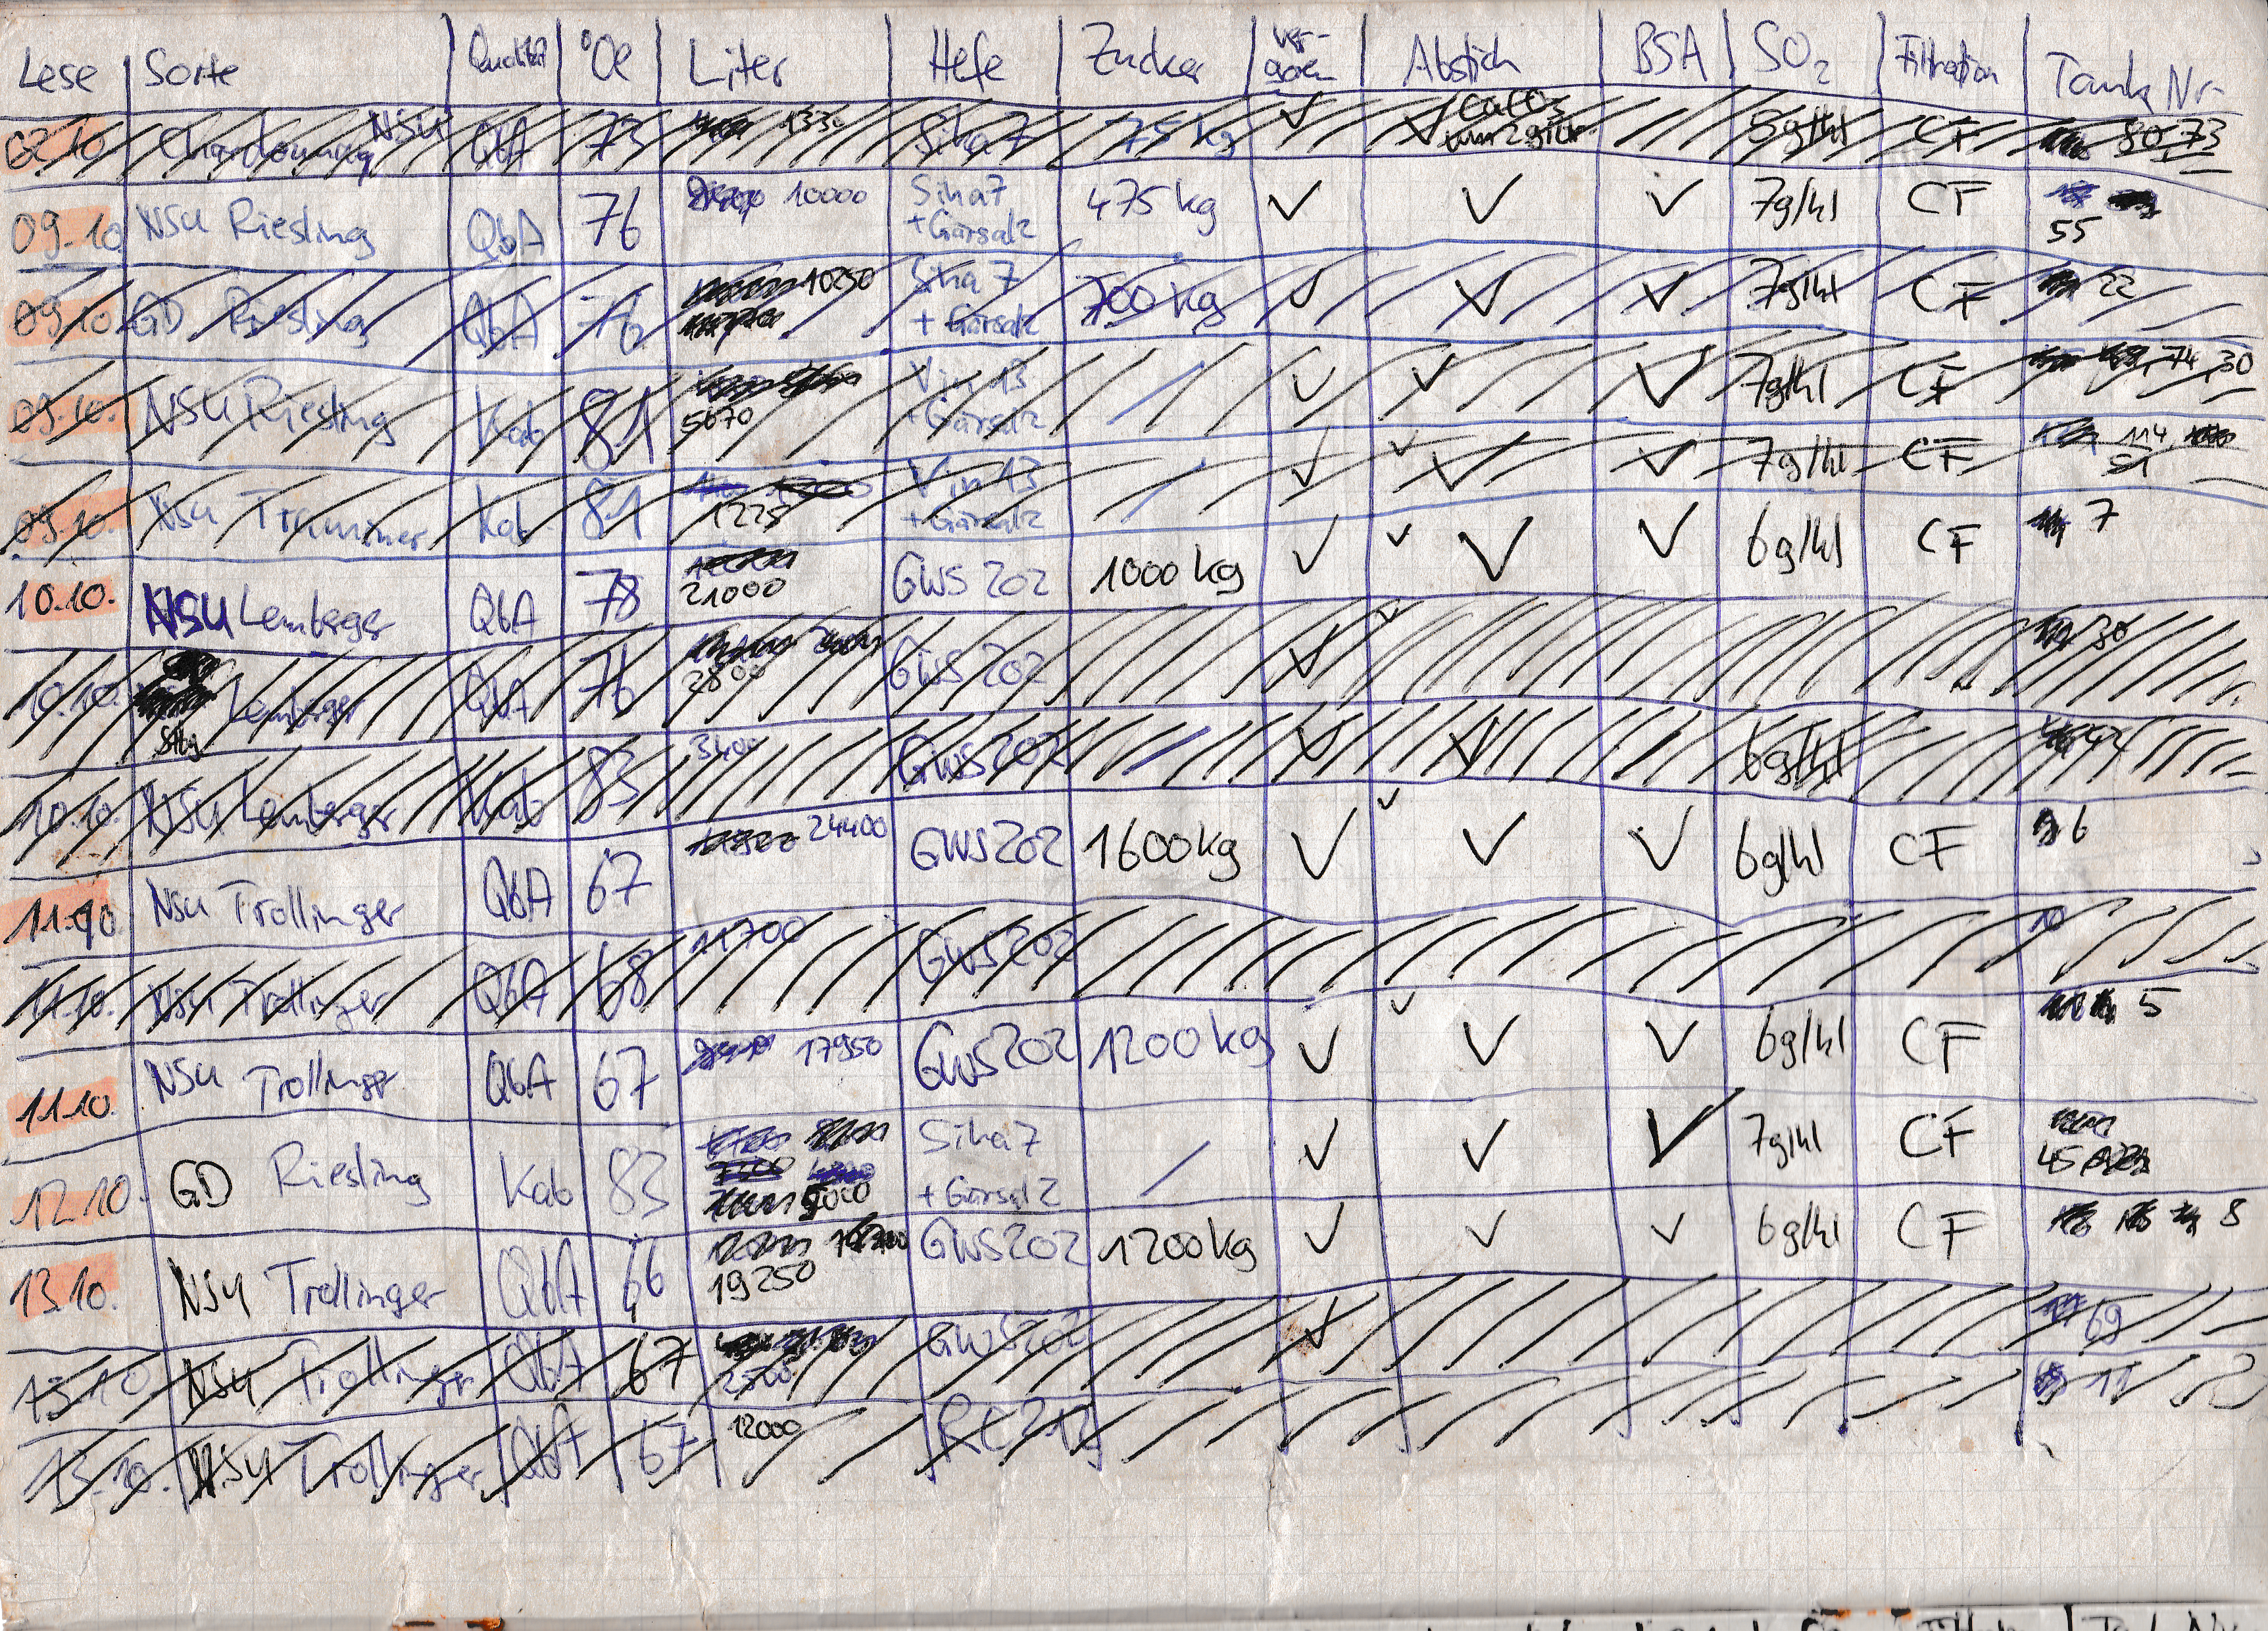 Lese Sorte Qualität °Oe Liter Hefe Zucker ver-goren Abstich BSA SO2 Filtration Tank Nr.
02.10 Chardonnay NSU QbA 73 1330 Siha 7 75 kg ✓ ✓ 5g/hl CF 80 73
09.10 NSU Riesling QbA 76 10000 Siha7 + Gärsalz 475 kg ✓ ✓ ✓ 7g/hl CF 55
09.10. GD Riesling QbA 76 10250 Siha 7 + Gärsalz 700 kg ✓ ✓ ✓ 7g/hl CF 22
09.10. NSU Riesling Kab 81 5670 Vin 13 + Gärsalz / ✓ ✓ ✓ 7g/hl CF 74, 30
09.10. NSU Traminer Kab 81 1225 Vin 13 + Gärsalz / ✓ ✓ ✓ ✓ 7g/hl CF 114 51
10.10. NSU Lemberger QbA 78 21000 GWS 202 1000 kg ✓ ✓ ✓ ✓ 6g/hl CF 7
10.10. Lemberger QbA 76 2800 GWS 202 ✓ ✓ 30
10.10. NSU Lemberger Kab 83 3400 GWS 202 / ✓ ✓ 6g/hl 42
11.10 NSU Trollinger QbA 67 24400 GWS 202 1600 kg ✓ ✓ ✓ ✓ 6g/hl CF 6
11.10. NSU Trollinger QbA 68 11700 GWS 202 10
11.10. NSU Trollinger QbA 67 17950 GWS 202 1200 kg ✓ ✓ ✓ ✓ 6g/hl CF 5
12.10. GD Riesling Kab 83 9000 Siha 7 + Gärsalz / ✓ ✓ ✓ 7g/hl CF 45
13.10. NSU Trollinger QbA 66 19250 GWS 202 1200 kg ✓ ✓ ✓ 6g/hl CF 8
13.10. NSU Trollinger QbA 67 2500 GWS 202 ✓ 69
13.10. NSU Trollinger QbA 67 12000 RC 212 11